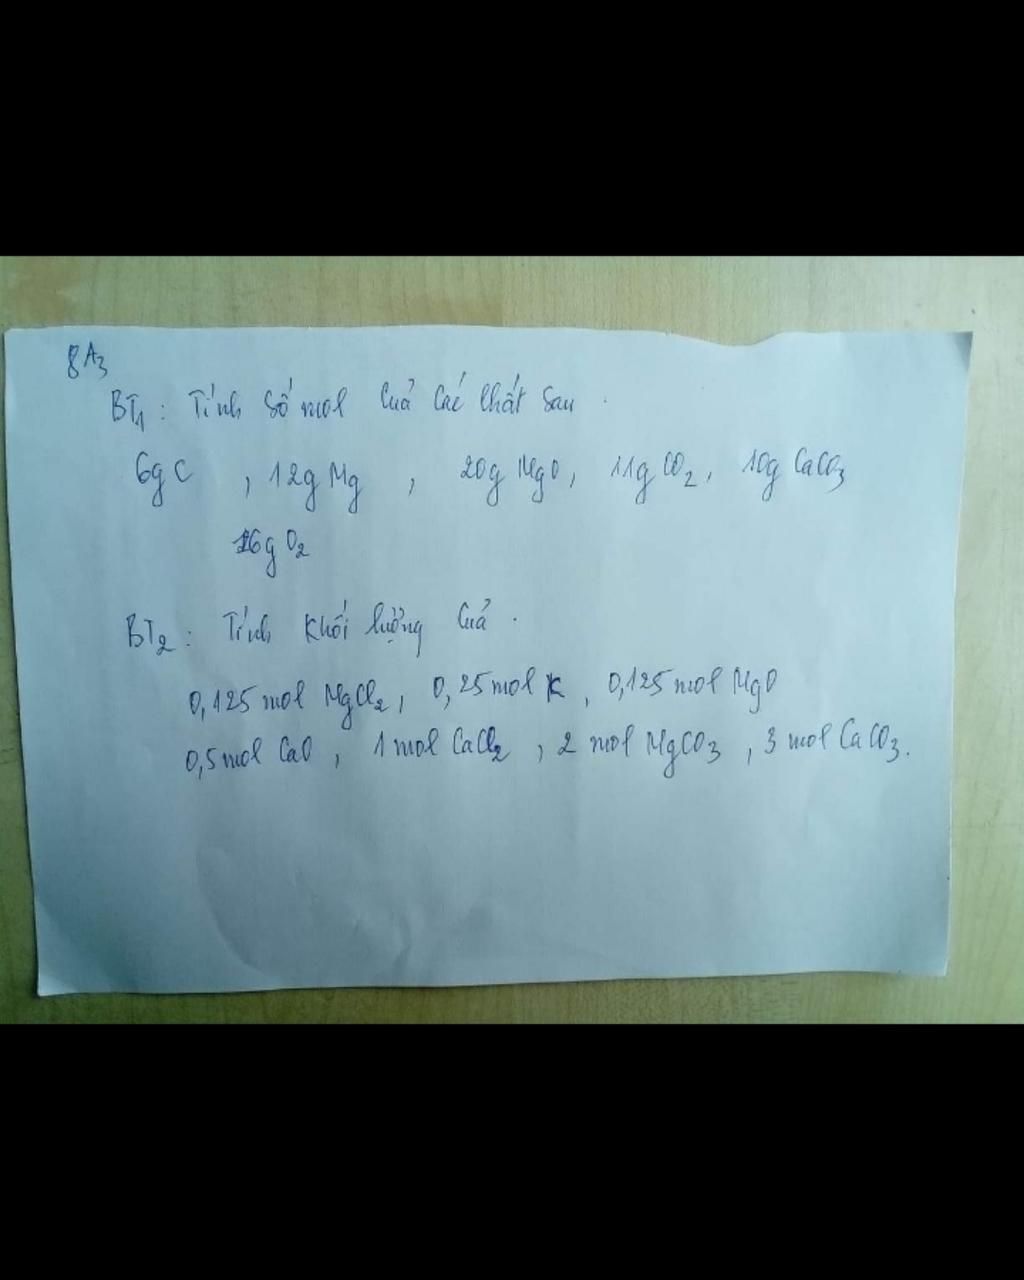 8A3
BT1: Tính số mol của các chất sau.
6g C, 12g Mg, 20g MgO, 11g CO2, 10g CaCO3
16g O2
BT2: Tính khối lượng của.
0,125 mol MgCl2, 0,25 mol K, 0,125 mol MgO
0,5 mol CaO, 1 mol CaCl2, 2 mol MgCO3, 3 mol CaCO3.